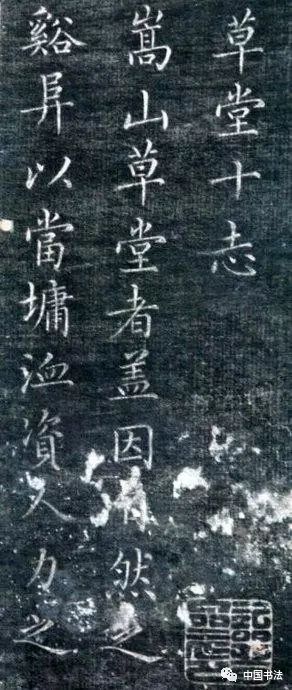 草堂十志
嵩山草堂者盖因自然之
谿阜以當墉洫資人力之
中国书法